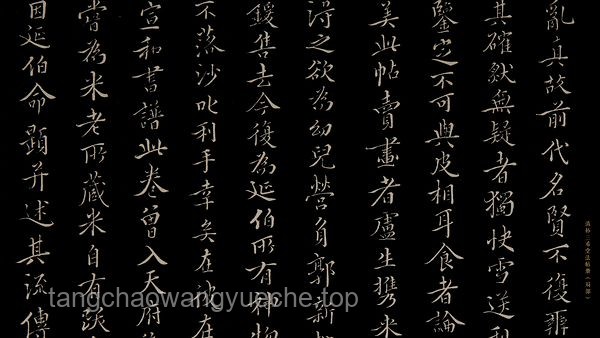 亂真故前代名賢不復辨
其確然無疑者獨快雪送
鑒定不可與皮相耳食者論
美此帖賣畫者盧生攜來
淂之欲為幼兒營負郭新
鍰售去今復為延伯所有神物
不落沙叱利手幸矣在波在
宣和書譜此卷曾入天府
嘗為米老所藏米自有跋
因延伯命題并述其流傳
tangchaowangyueche.top